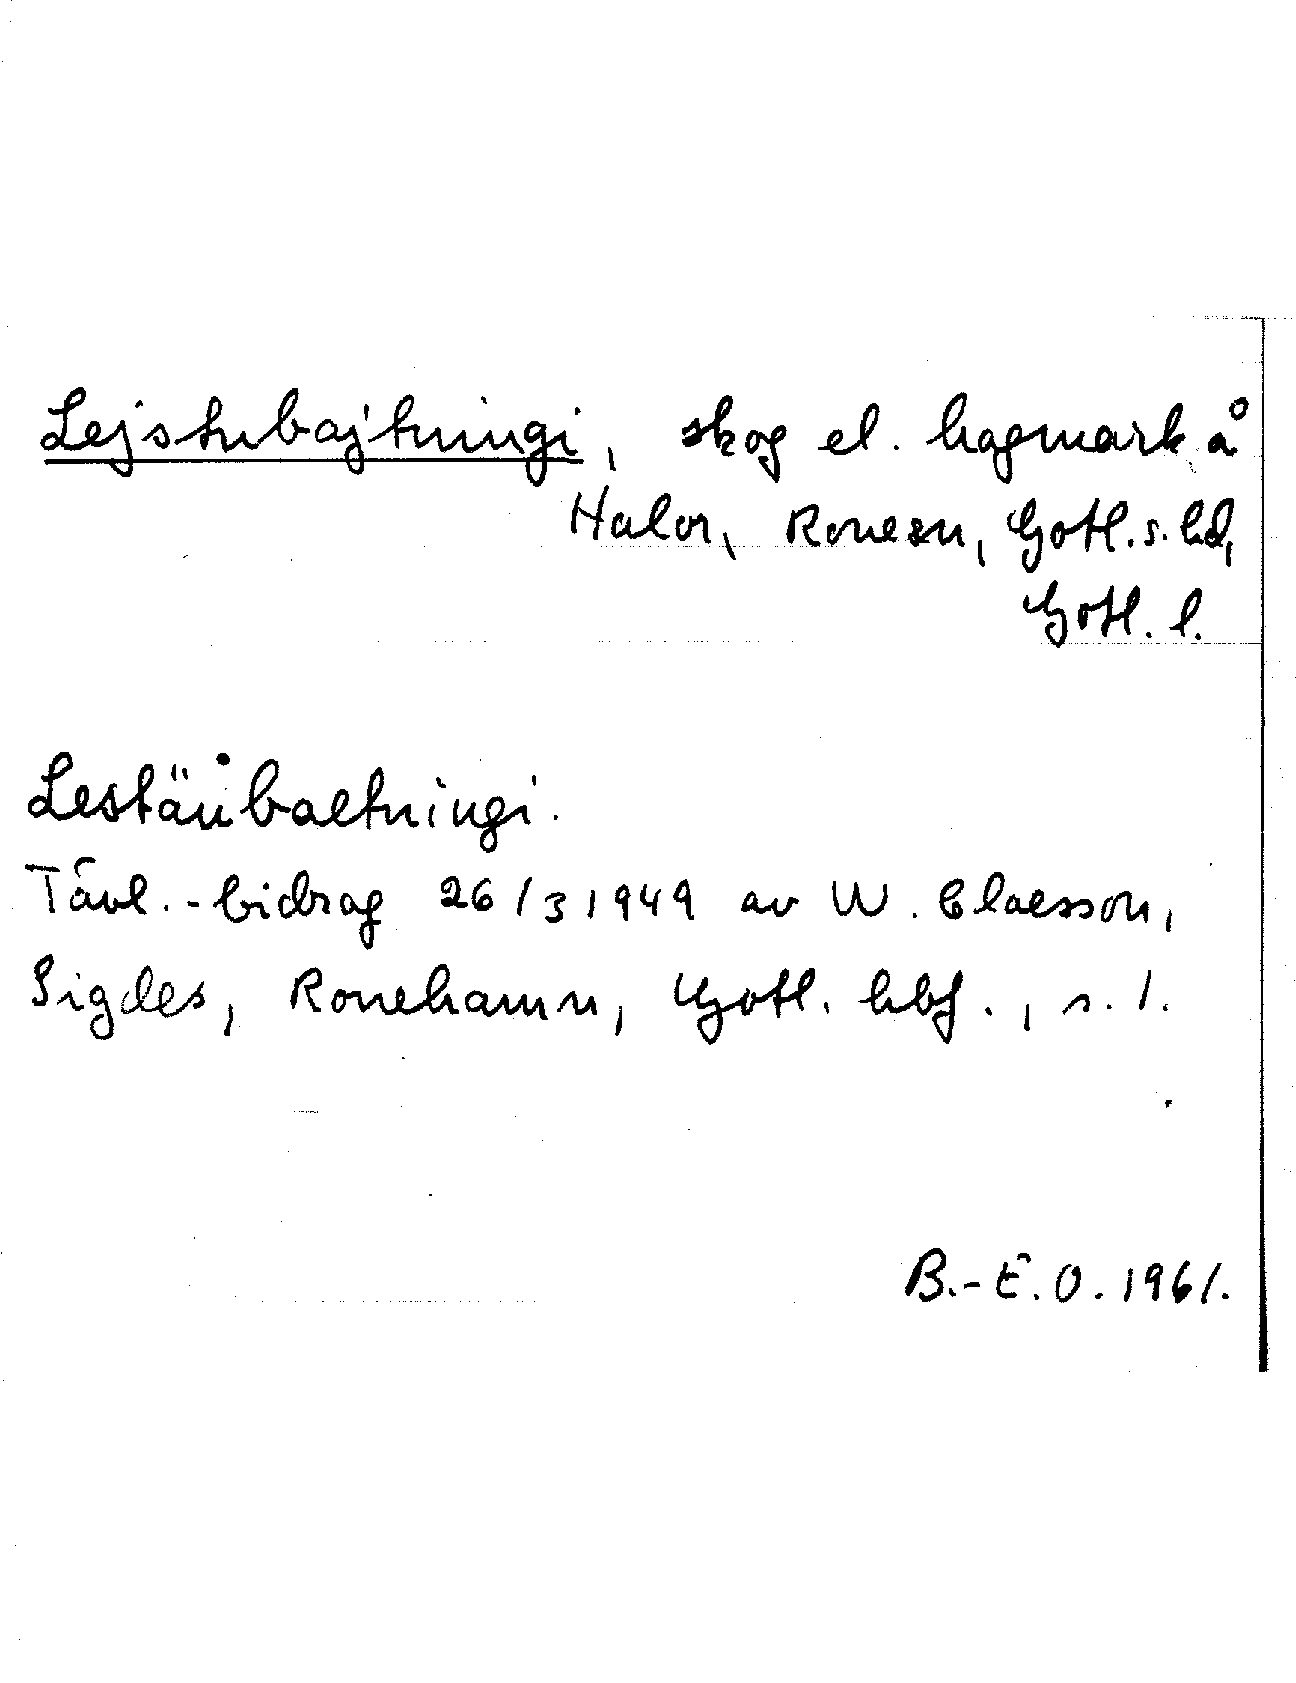 Lejstubajtningi, skog el. hagmark å
Halor, Rone sn, Gotl. s. hd,
Gotl. l.
Lestäubaetningi.
Tävl.-bidrag 26/3 1949 av W. Claesson,
Sigdes, Ronehamn, Gotl. hbf., s. 1.
B.-E. O. 1961.